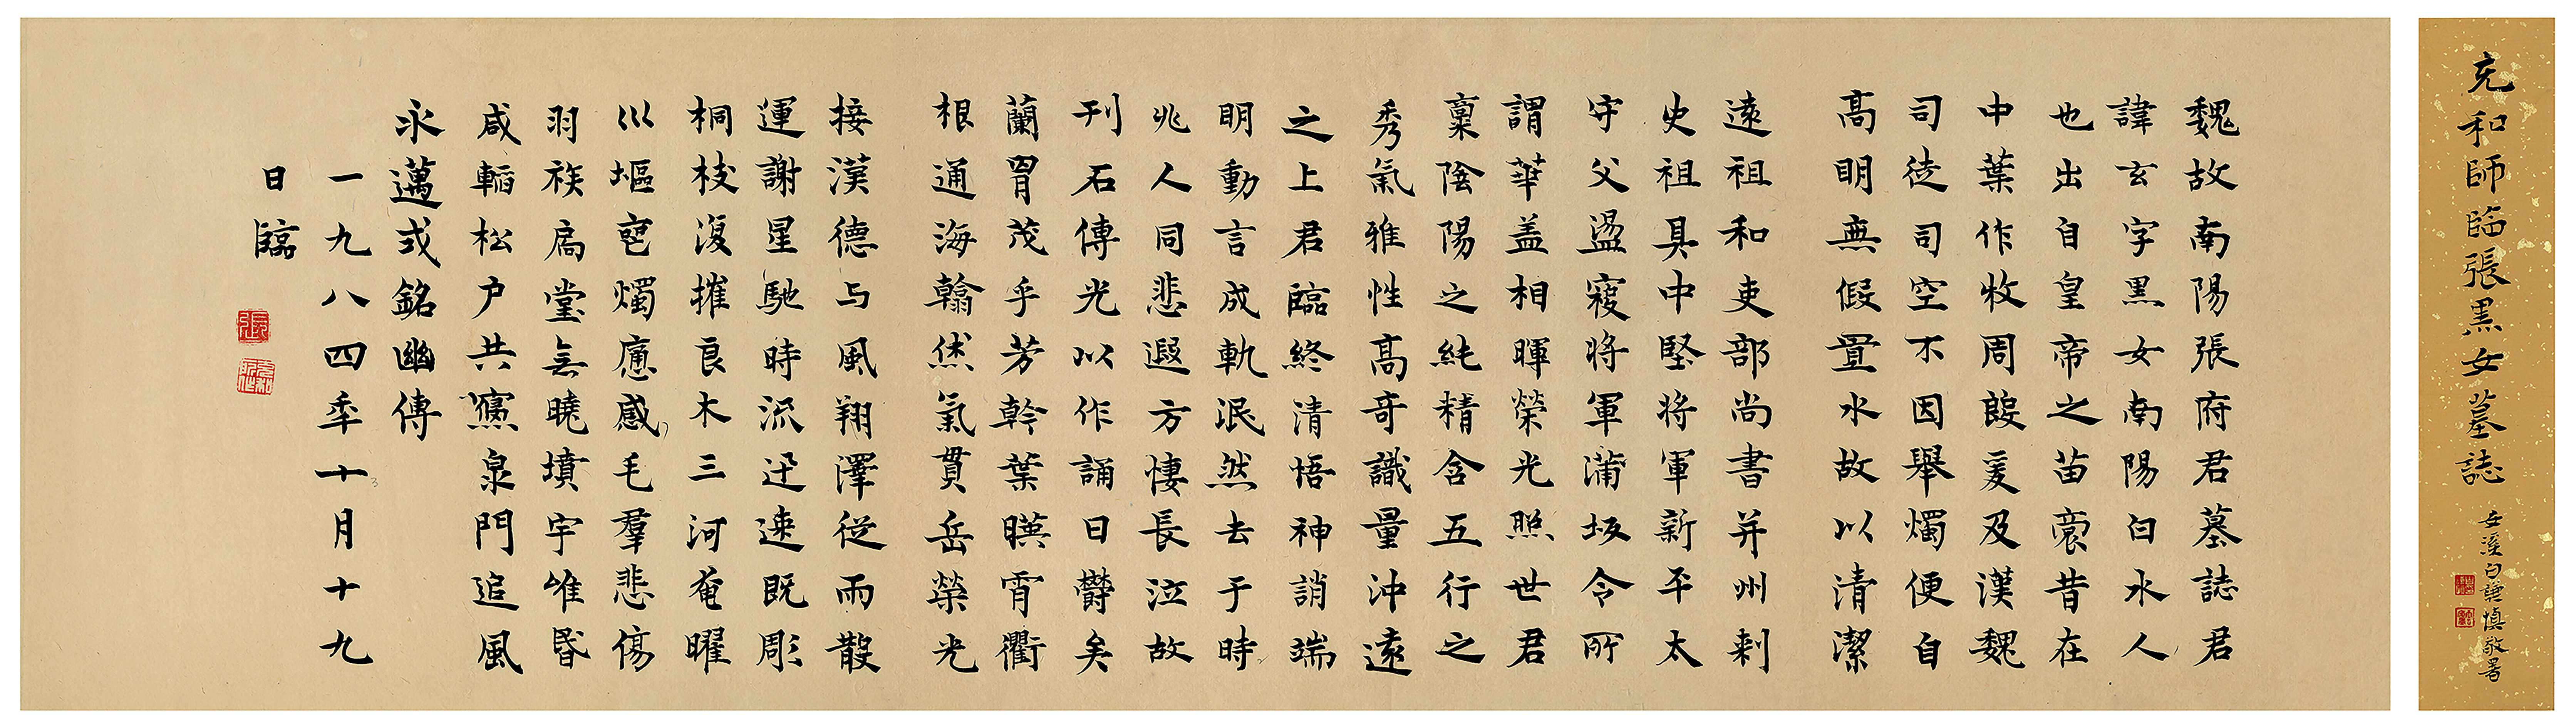 充和師臨張黑女墓誌
安溪白謙慎敬署
魏故南陽張府君墓誌君
諱玄字黑女南陽白水人
也出自皇帝之苗裔昔在
中葉作牧周殷爰及漢魏
司徒司空不因舉燭便自
高明無假置水故以清潔
遠祖和吏部尚書并州刺
史祖具中堅将軍新平太
守父盪寇将軍蒲坂令所
謂華盖相暉榮光照世君
稟陰陽之純精含五行之
秀氣雅性高奇識量沖遠
之上君臨終清悟神誚端
明動言成軌泯然去于時
兆人同悲遐方悽長泣故
刊石傳光以作誦曰欝矣
蘭胄茂乎芳幹葉暎霄衢
根通海翰烋氣貫岳榮光
接漢德与風翔澤從雨散
運謝星馳時流迅速既彫
桐枝復摧良木三河奄曜
巛塸燭感毛羣悲傷
羽族扃堂無曉墳宇唯昏
咸韜松户共寢泉門追風
永邁式銘幽傳
一九八四年十月十九
日臨
張
充和所作